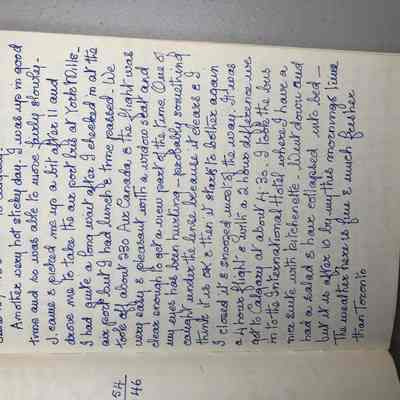 to Calgary
Another very hot sticky day. I was up in good
time and so was able to move fairly slowly.
J. came & picked me up a bit after 11 and
drove me to take the airport bus at Yorkdale.
I had quite a long wait after I checked in at the
airport but I had lunch & time passed. We
took off about 2 30 Air Canada, & the flight was
very easy & pleasant with a window seat and
clear enough to get a view part of the time. One of
my eyes has been hurting - probably something
caught under the lense because it clears & I
think it is ok & then it starts to bother again
I closed it & snoozed most of the way. It was
a 4 hour flight & with a 2 hour difference we
got to Calgary at about 4:30. I took the bus
in to the International Hotel where I have a
nice suite with kitchenette. Went down and
had a salad & have collapsed into bed -
but it is after 10 by my this mornings time
The weather here is fine & much fresher
than Toronto
54
46